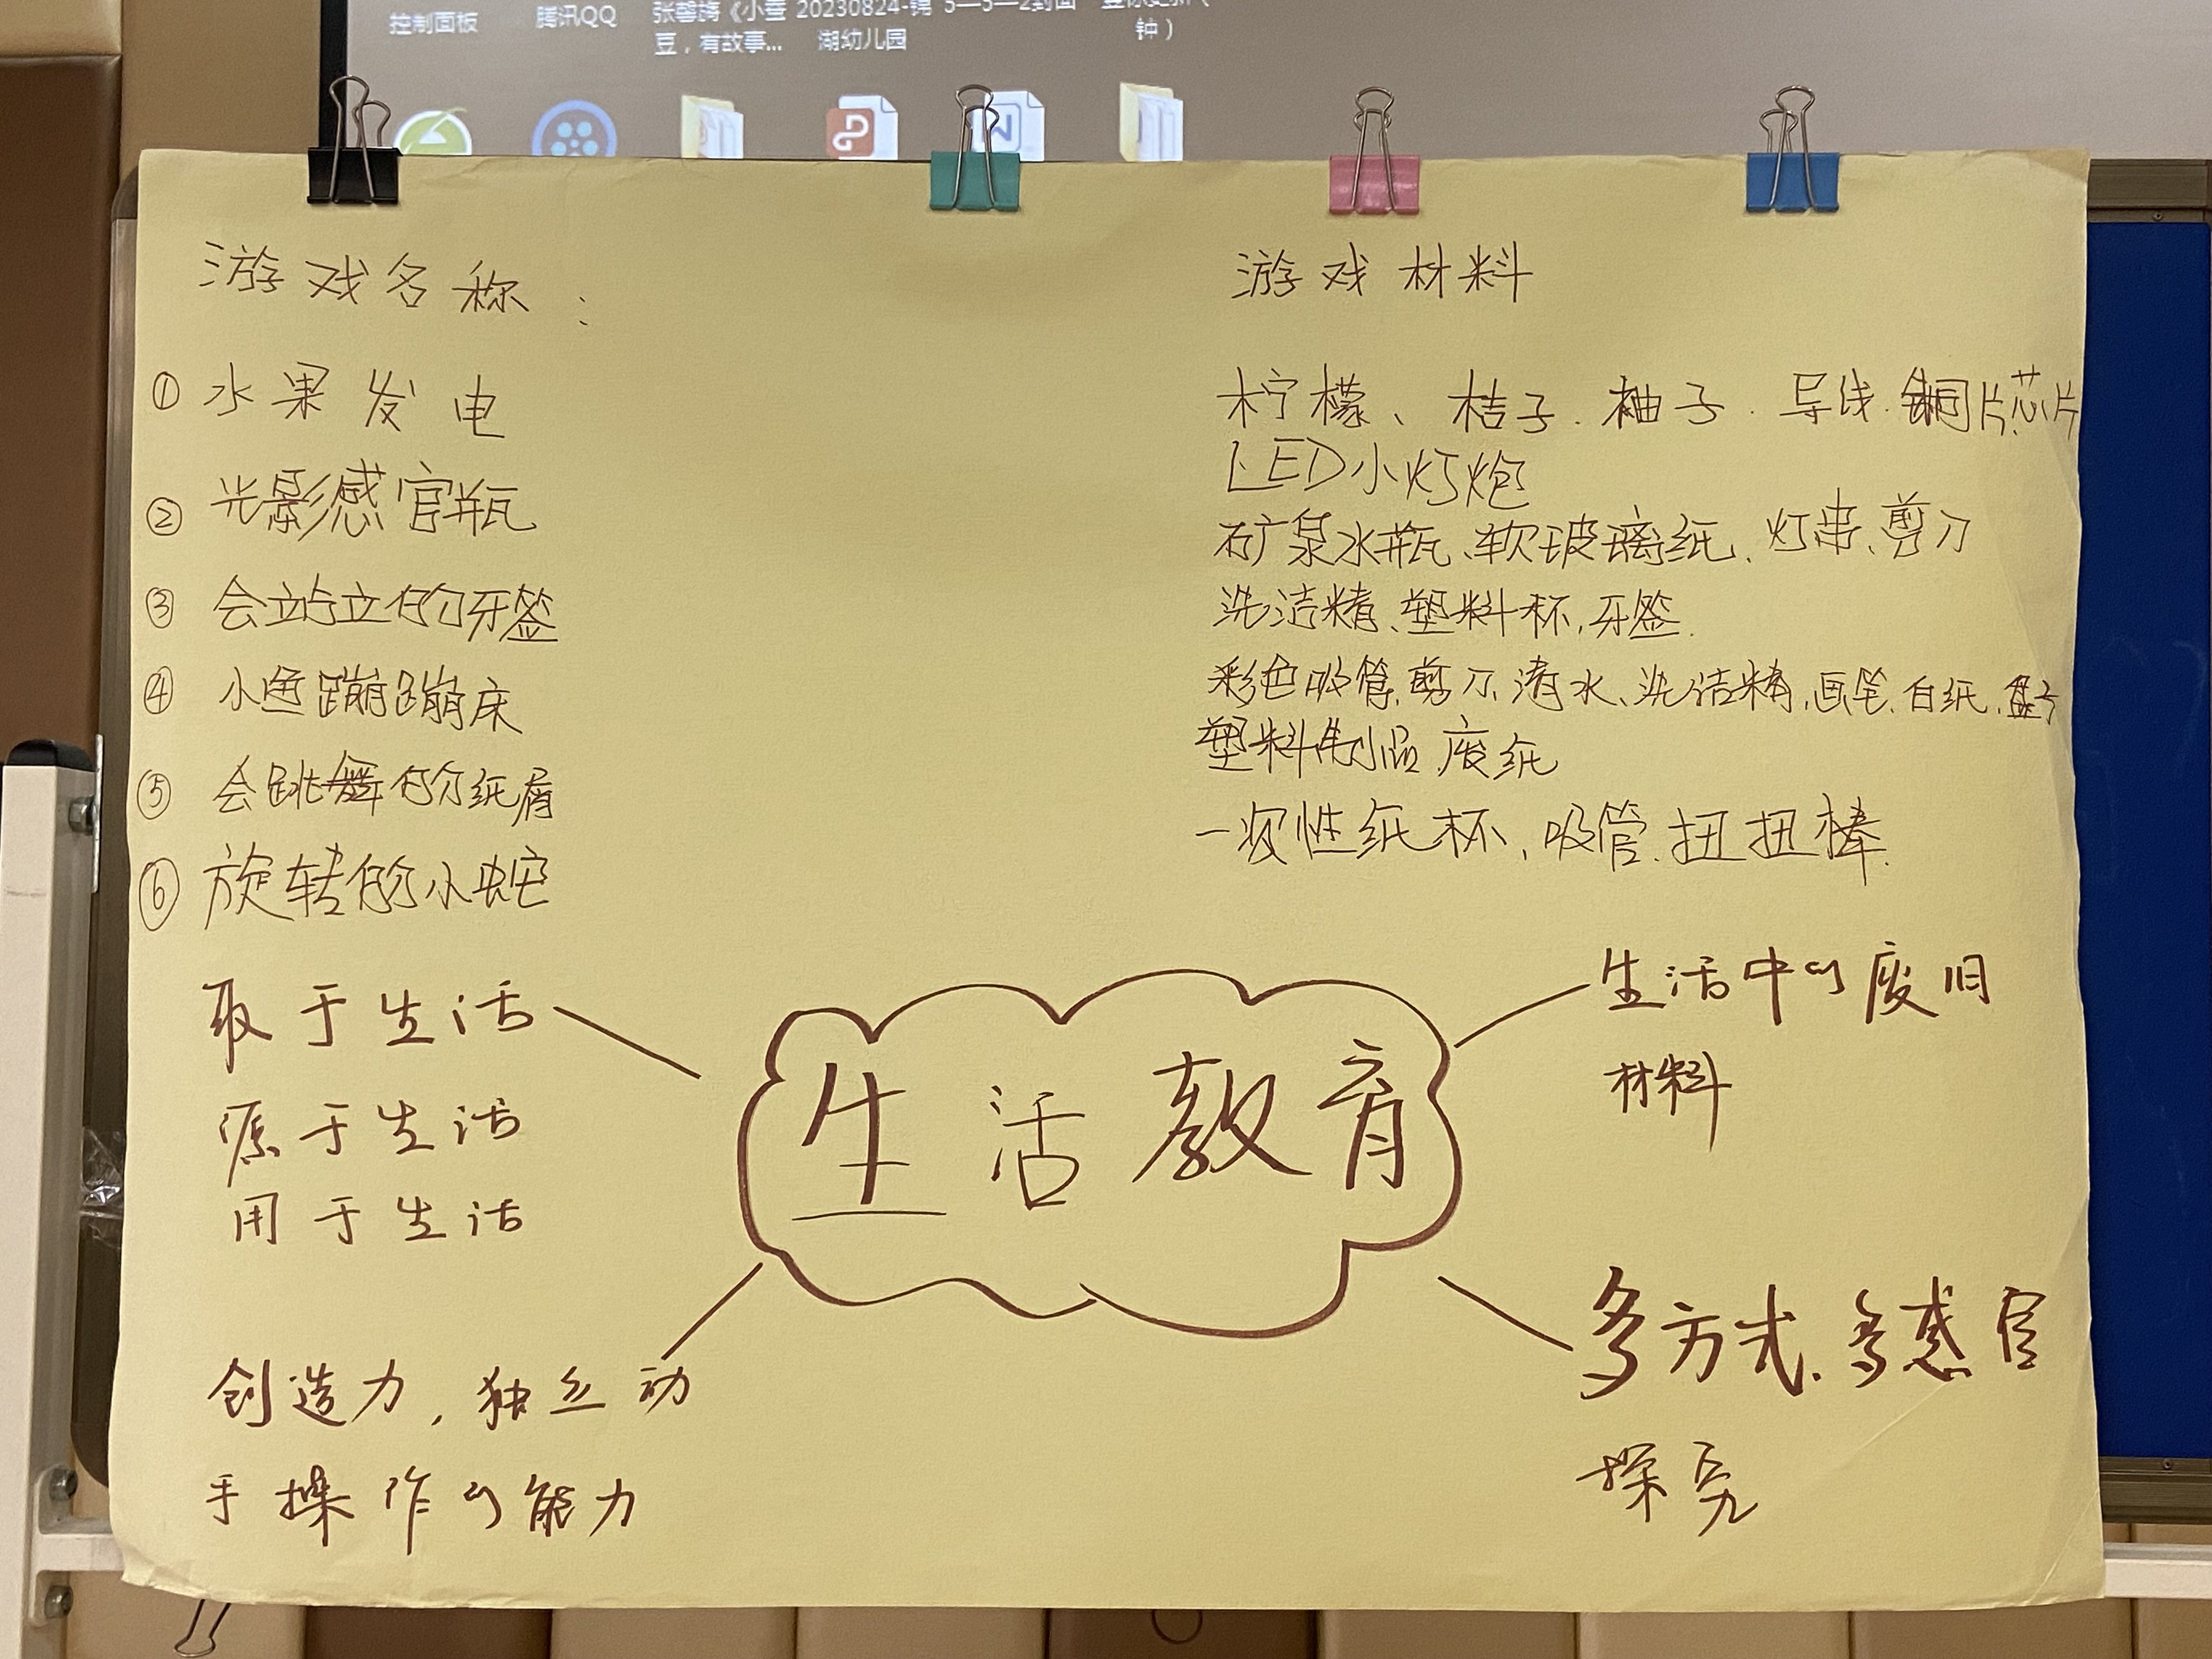 控制面板
腾讯QQ
豆，有故事...
20230824-锦
湖幼儿园
5—5—2封面
钟）
游戏名称：
游戏材料
① 水果发电
柠檬、桔子．柚子．导线．铜片芯片
LED小灯炮
② 光影感官瓶
矿泉水瓶、软玻璃纸、灯串、剪刀
③ 会站立的牙签
洗洁精、塑料杯，牙签．
④ 小鱼蹦蹦床
彩色吸管，剪刀、清水、洗洁精，画笔、白纸，盘子
⑤ 会跳舞的纸屑
塑料制品 废纸
⑥ 旋转的小蛇
一次性纸杯，吸管．扭扭棒．
取于生活
源于生活
用于生活
生活教育
生活中的废旧
材料
创造力，独立动
手操作的能力
多方式、多感官
探究